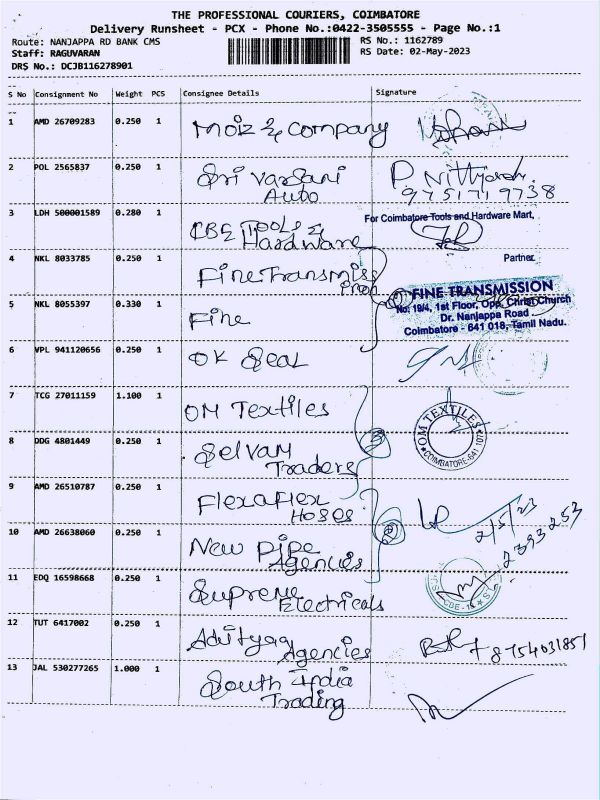 THE PROFESSIONAL COURIERS, COIMBATORE
Delivery Runsheet - PCX - Phone No.:0422-3505555 - Page No.:1
Route: NANJAPPA RD BANK CMS
RS No.: 1162789
Staff: RAGUVARAN
RS Date: 02-May-2023
DRS No.: DCJB116278901
S No Consignment No Weight PCS Consignee Details Signature
1 AMD 26709283 0.250 1 Moiz & Company
2 POL 2565837 0.250 1 Sri Varsani
Auto
P. Nithyash
9751719738
3 LDH 500001589 0.280 1 CBE Tools &
Hardware
For Coimbatore Tools and Hardware Mart,
Partner
4 NKL 8033785 0.250 1 Fine Transmiss
ion
FINE TRANSMISSION
No: 19/4, 1st Floor, Opp. Christ Church
Dr. Nanjappa Road
Coimbatore - 641 018, Tamil Nadu.
5 NKL 8055397 0.330 1 Fine
6 VPL 941120656 0.250 1 OK Seal
7 TCG 27011159 1.100 1 OM Textiles
OM TEXTILES
COIMBATORE-641 107
8 DDG 4801449 0.250 1 Selvam
Traders
9 AMD 26510787 0.250 1 Flexaflex
Hoses
2/5/23
10 AMD 26638060 0.250 1 New Pipe
Agencies
2
2393253
11 EDQ 16598668 0.250 1 Supreme
Electricals
CBE-18
12 TUT 6417002 0.250 1 Adityaa
Agencies
8754031851
13 JAL 530277265 1.000 1 South India
Trading